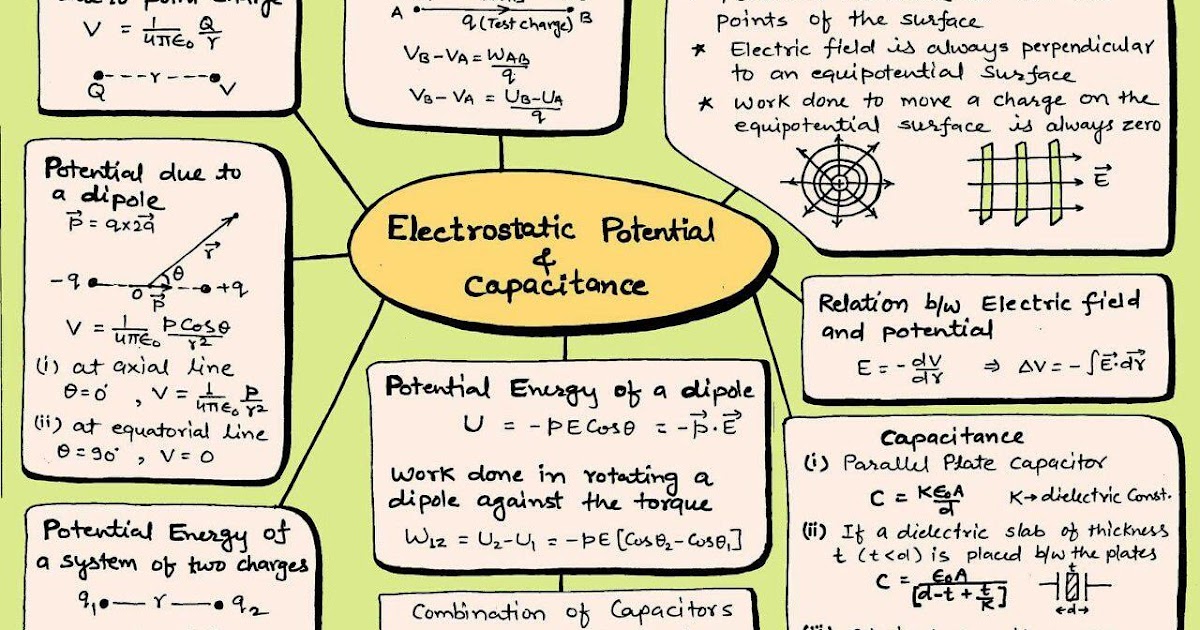 V = 1/4πε₀ Q/r
Q ---r--- V
A B
q (Test charge)
V_B - V_A = W_AB/q
V_B - V_A = U_B - U_A/q
points of the surface
* Electric field is always perpendicular
to an equipotential surface
* Work done to move a charge on the
equipotential surface is always zero
+
E⃗
Electrostatic Potential
&
Capacitance
Potential due to
a dipole
p⃗ = q×2a⃗
r⃗
θ
-q O p⃗ +q
V = 1/4πε₀ pCosθ/r²
(i) at axial line
θ=0° , V = 1/4πε₀ p/r²
(ii) at equatorial line
θ=90° , V=0
Relation b/w Electric field
and potential
E = -dV/dr ⇒ ΔV = -∫E⃗·dr⃗
Potential Energy of a dipole
U = -pECosθ = -p⃗·E⃗
Work done in rotating a
dipole against the torque
W₁₂ = U₂-U₁ = -pE[Cosθ₂-Cosθ₁]
Capacitance
(i) Parallel Plate Capacitor
C = Kε₀A/d K→dielectric Const.
(ii) If a dielectric slab of thickness
t (t<d) is placed b/w the plates
C = ε₀A/[d-t+t/K]
t
←d→
Potential Energy of
a system of two charges
q₁ —r— q₂
Combination of Capacitors